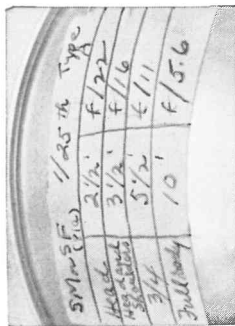 5M or SF 1/25th Type
Head 2 1/2' f/22
Head and Shoulders 3 1/2' f/16
3/4 5 1/2' f/11
Full body 10' f/5.6